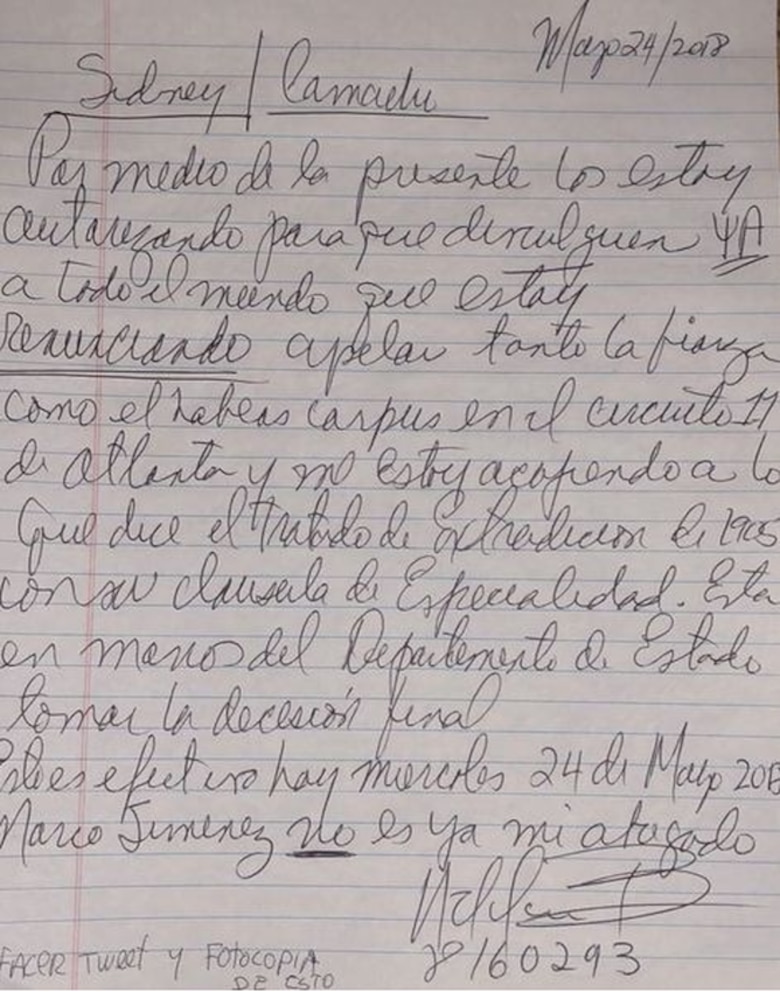 Mayo 24/2018
Sidney / Camaelu
Por medio de la presente los estoy
autorizando para que divulguen YA
a todo el mundo que estoy
renunciando apelar tanto la fianza
como el habeas corpus en el circuito 11
de Atlanta y me estoy acogiendo a lo
que dice el tratado de Extradicion de 1905
con su clausula de Especialidad. Esta
en manos del Departamento de Estado
tomar la decesión final
Esto es efectivo hoy miercoles 24 de Mayo 2018
Marco Jimenez no es ya mi abogado
78160293
FACER TWEET Y FOTOCOPIA
DE ESTO